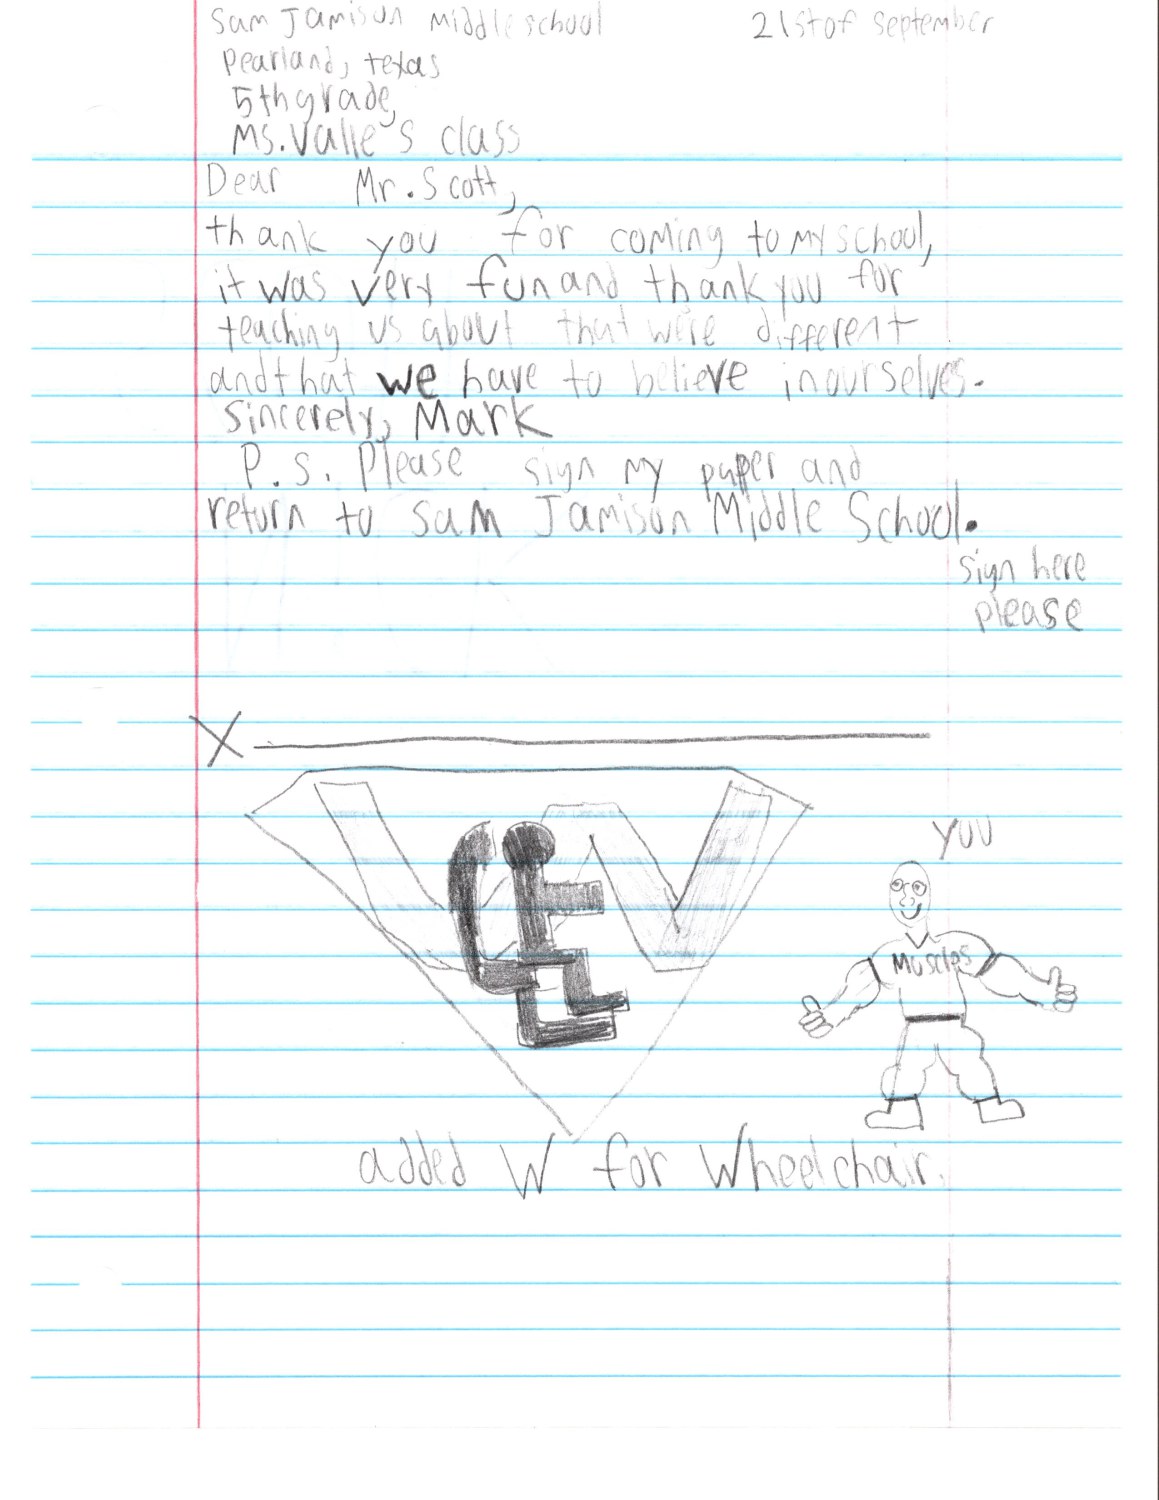 Sam Jamison Middle school 21st of September
Pearland, texas
5th grade,
Ms. Valle's class
Dear Mr. Scott,
thank you for coming to my school,
it was very fun and thank you for
teaching us about that were different
and that we have to believe in ourselves.
Sincerely, Mark
P.S. Please sign my paper and
return to Sam Jamison Middle School.
sign here
please
X
W
you
Muscles
added W for Wheelchair.